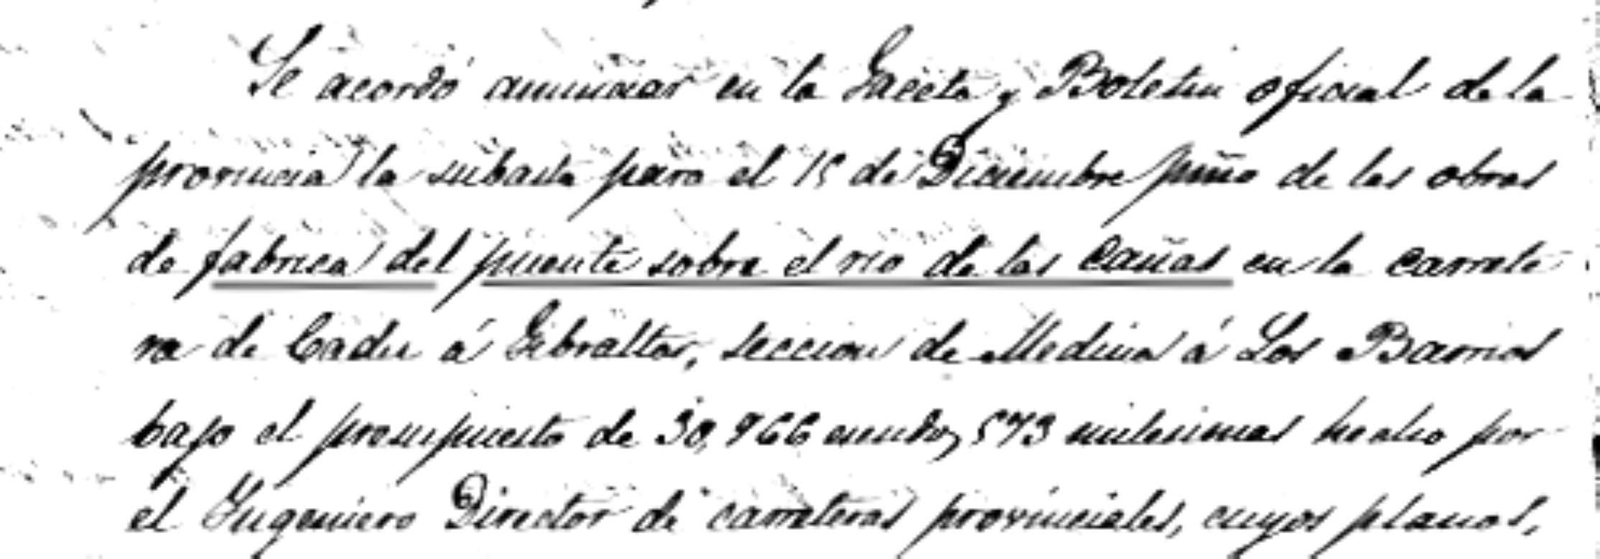 Se acordó anunciar en la Gaceta y Boletin oficial de la
provincia la subasta para el 15 de Diciembre pmo de las obras
de fabrica del puente sobre el rio de las Cañas en la carrete
ra de Cadiz á Gibraltar, seccion de Medina á Los Barrios
bajo el presupuesto de 30,966 escudos, 573 milesimas hecho por
el Ingeniero Director de carreteras provinciales, cuyos planos,